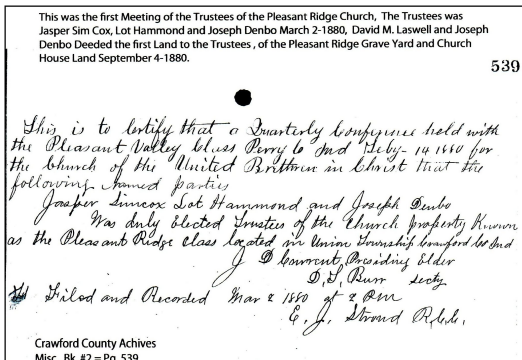 This was the first Meeting of the Trustees of the Pleasant Ridge Church, The Trustees was
Jasper Sim Cox, Lot Hammond and Joseph Denbo March 2-1880, David M. Laswell and Joseph
Denbo Deeded the first Land to the Trustees , of the Pleasant Ridge Grave Yard and Church
House Land September 4-1880.
539
This is to Certify that a Quarterly Conference held with
the Pleasant Valley Class Perry Co Ind Feby- 14 1880 for
the Church of the United Brethren in Christ that the
following Named parties
Jasper Simcox Lot Hammond and Joseph Denbo
Was duly Elected Trustees of the Church property Known
as the Pleasant Ridge Class located in Union Township Crawford Co Ind
J D Current, Presiding Elder
D. S. Burr Secty
Filed and Recorded Mar 2 1880 at 2 PM
E. J. Stroud R.C.C.
Crawford County Achives
Misc. Bk. #2 = Pg. 539